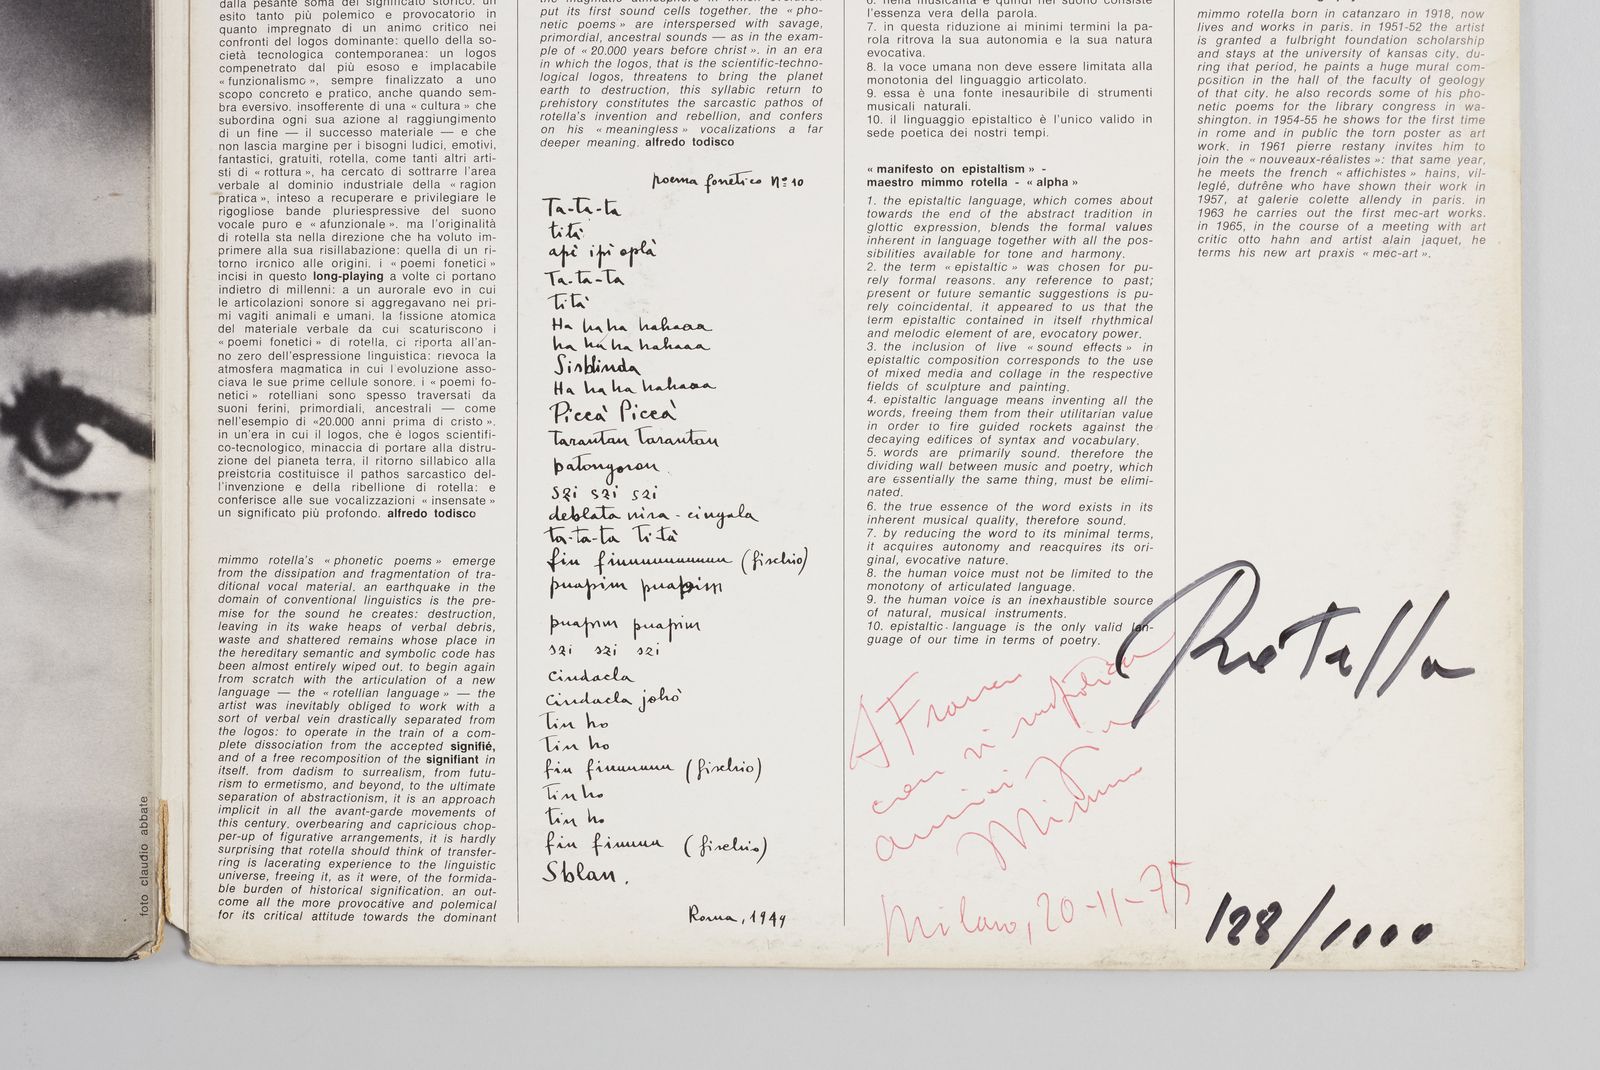 dalla pesante soma del significato storico. un
esito tanto più polemico e provocatorio in
quanto impregnato di un animo critico nei
confronti del logos dominante: quello della so-
cietà tecnologica contemporanea: un logos
compenetrato dal più esoso e implacabile
« funzionalismo », sempre finalizzato a uno
scopo concreto e pratico, anche quando sem-
bra eversivo. insofferente di una « cultura » che
subordina ogni sua azione al raggiungimento
di un fine — il successo materiale — e che
non lascia margine per i bisogni ludici, emotivi,
fantastici, gratuiti, rotella, come tanti altri arti-
sti di « rottura », ha cercato di sottrarre l'area
verbale al dominio industriale della « ragion
pratica », inteso a recuperare e privilegiare le
rigogliose bande pluriespressive del suono
vocale puro e « afunzionale ». ma l'originalità
di rotella sta nella direzione che ha voluto im-
primere alla sua risillabazione: quella di un ri-
torno ironico alle origini. i « poemi fonetici »
incisi in questo long-playing a volte ci portano
indietro di millenni: a un aurorale evo in cui
le articolazioni sonore si aggregavano nei pri-
mi vagiti animali e umani. la fissione atomica
del materiale verbale da cui scaturiscono i
« poemi fonetici » di rotella, ci riporta all'an-
no zero dell'espressione linguistica: rievoca la
atmosfera magmatica in cui l'evoluzione asso-
ciava le sue prime cellule sonore. i « poemi fo-
netici » rotelliani sono spesso traversati da
suoni ferini, primordiali, ancestrali — come
nell'esempio di «20.000 anni prima di cristo ».
in un'era in cui il logos, che è logos scientifi-
co-tecnologico, minaccia di portare alla distru-
zione del pianeta terra, il ritorno sillabico alla
preistoria costituisce il pathos sarcastico del-
l'invenzione e della ribellione di rotella: e
conferisce alle sue vocalizzazioni « insensate »
un significato più profondo. alfredo todisco
mimmo rotella's « phonetic poems » emerge
from the dissipation and fragmentation of tra-
ditional vocal material. an earthquake in the
domain of conventional linguistics is the pre-
mise for the sound he creates: destruction,
leaving in its wake heaps of verbal debris,
waste and shattered remains whose place in
the hereditary semantic and symbolic code has
been almost entirely wiped out. to begin again
from scratch with the articulation of a new
language — the « rotellian language » — the
artist was inevitably obliged to work with a
sort of verbal vein drastically separated from
the logos: to operate in the train of a com-
plete dissociation from the accepted signifié,
and of a free recomposition of the signifiant in
itself. from dadism to surrealism, from futu-
rism to ermetismo, and beyond, to the ultimate
separation of abstractionism, it is an approach
implicit in all the avant-garde movements of
this century. overbearing and capricious chop-
per-up of figurative arrangements, it is hardly
surprising that rotella should think of transfer-
ring is lacerating experience to the linguistic
universe, freeing it, as it were, of the formida-
ble burden of historical signification. an out-
come all the more provocative and polemical
for its critical attitude towards the dominant
foto claudio abbate
put its first sound cells together. the « pho-
netic poems » are interspersed with savage,
primordial, ancestral sounds — as in the exam-
ple of « 20.000 years before christ ». in an era
in which the logos, that is the scientific-techno-
logical logos, threatens to bring the planet
earth to destruction, this syllabic return to
prehistory constitutes the sarcastic pathos of
rotella's invention and rebellion, and confers
on his « meaningless » vocalizations a far
deeper meaning. alfredo todisco
poema fonetico N° 10
Ta-ta-ta
tità
apì ipì oplà
Ta-ta-ta
tità
Ha ha ha hahaaa
ha ha ha hahaaa
Sisblinda
Ha ha ha hahaaa
Piccà Piccà
tarantan tarantan
patongoron
szi szi szi
deblata nira - cingala
ta-ta-ta ti-tà
fin finnnnnnnnnn (fischio)
puapim puapim
puapim puapim
szi szi szi
cindacla
cindacla johò
tin ho
tin ho
fin finnnnnn (fischio)
tin ho
tin ho
fin finnnnn (fischio)
Sblan.
Roma, 1949
l'essenza vera della parola.
7. in questa riduzione ai minimi termini la pa-
rola ritrova la sua autonomia e la sua natura
evocativa.
8. la voce umana non deve essere limitata alla
monotonia del linguaggio articolato.
9. essa è una fonte inesauribile di strumenti
musicali naturali.
10. il linguaggio epistaltico è l'unico valido in
sede poetica dei nostri tempi.
« manifesto on epistaltism » -
maestro mimmo rotella - « alpha »
1. the epistaltic language, which comes about
towards the end of the abstract tradition in
glottic expression, blends the formal values
inherent in language together with all the pos-
sibilities available for tone and harmony.
2. the term « epistaltic » was chosen for pu-
rely formal reasons. any reference to past;
present or future semantic suggestions is pu-
rely coincidental. it appeared to us that the
term epistaltic contained in itself rhythmical
and melodic element of are, evocatory power.
3. the inclusion of live « sound effects » in
epistaltic composition corresponds to the use
of mixed media and collage in the respective
fields of sculpture and painting.
4. epistaltic language means inventing all the
words, freeing them from their utilitarian value
in order to fire guided rockets against the
decaying edifices of syntax and vocabulary.
5. words are primarily sound. therefore the
dividing wall between music and poetry, which
are essentially the same thing, must be elimi-
nated.
6. the true essence of the word exists in its
inherent musical quality, therefore sound.
7. by reducing the word to its minimal terms,
it acquires autonomy and reacquires its ori-
ginal, evocative nature.
8. the human voice must not be limited to the
monotony of articulated language.
9. the human voice is an inexhaustible source
of natural, musical instruments.
10. epistaltic language is the only valid lan-
guage of our time in terms of poetry.
A Franca
con
Mimmo
Milano, 20-11-75
mimmo rotella born in catanzaro in 1918, now
lives and works in paris. in 1951-52 the artist
is granted a fulbright foundation scholarship
and stays at the university of kansas city. du-
ring that period, he paints a huge mural com-
position in the hall of the faculty of geology
of that city. he also records some of his pho-
netic poems for the library congress in wa-
shington. in 1954-55 he shows for the first time
in rome and in public the torn poster as art
work. in 1961 pierre restany invites him to
join the « nouveaux-réalistes »: that same year,
he meets the french « affichistes » hains, vil-
leglé, dufrêne who have shown their work in
1957, at galerie colette allendy in paris. in
1963 he carries out the first mec-art works.
in 1965, in the course of a meeting with art
critic otto hahn and artist alain jaquet, he
terms his new art praxis « mec-art ».
Rotella
128/1000